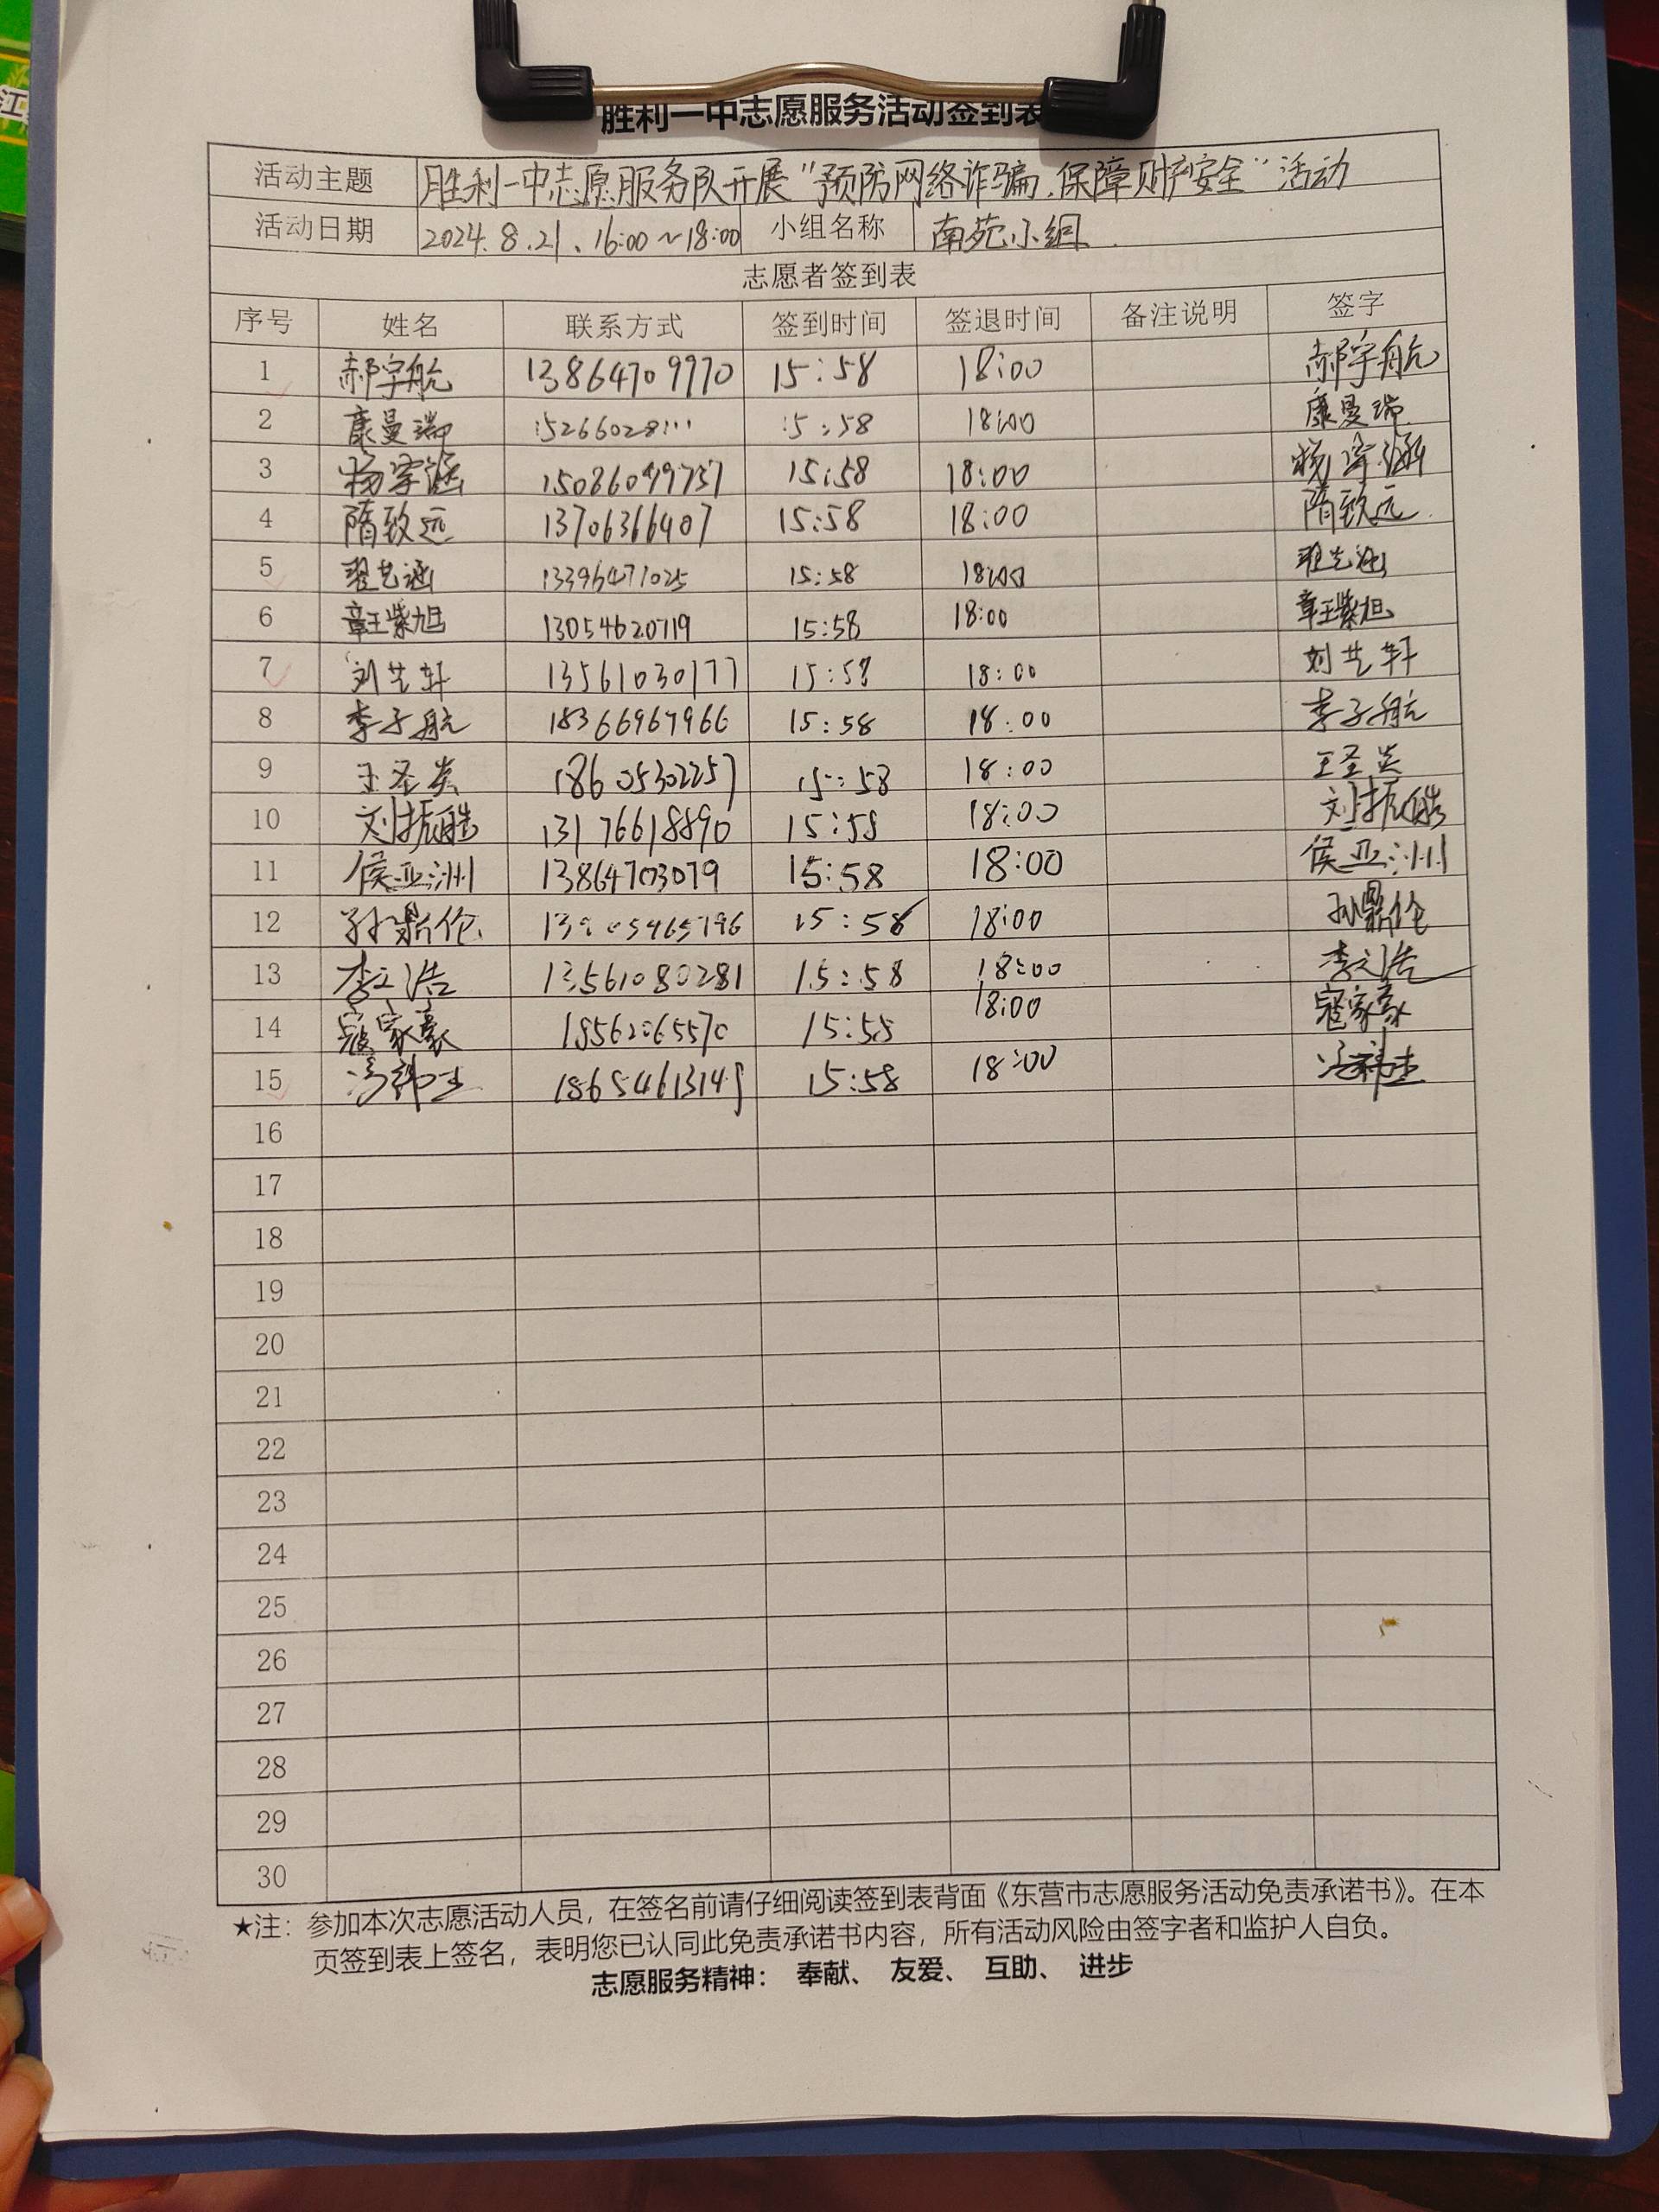 胜利一中志愿服务活动签到表
活动主题 胜利一中志愿服务队开展“预防网络诈骗.保障财产安全”活动
活动日期 2024.8.21、16:00~18:00 小组名称 南苑小组
志愿者签到表
序号 姓名 联系方式 签到时间 签退时间 备注说明 签字
1 郝宇航 13864709970 15:58 18:00 郝宇航
2 康曼瑞 15266028111 15:58 18:00 康曼瑞
3 杨宇涵 15:58 18:00 杨宇涵
4 隋致远 13706366407 15:58 18:00 隋致远
5 翟艺涵 13396471025 15:58 18:00 翟艺涵
6 章王紫旭 13054620719 15:58 18:00 章王紫旭
7 刘艺轩 13561030177 15:58 18:00 刘艺轩
8 李子航 18366967966 15:58 18:00 李子航
9 王圣炎 18605302257 15:58 18:00 王圣炎
10 刘振皓 13176618890 15:58 18:00 刘振皓
11 侯亚洲 13864703079 15:58 18:00 侯亚洲
12 孙鼎伦 15:58 18:00 孙鼎伦
13 李文浩 13561080281 15:58 18:00 李文浩
14 寇家豪 15:58 18:00 寇家豪
15 15:58 18:00
16
17
18
19
20
21
22
23
24
25
26
27
28
29
30
★注：参加本次志愿活动人员，在签名前请仔细阅读签到表背面《东营市志愿服务活动免责承诺书》。在本
页签到表上签名，表明您已认同此免责承诺书内容，所有活动风险由签字者和监护人自负。
志愿服务精神： 奉献、 友爱、 互助、 进步